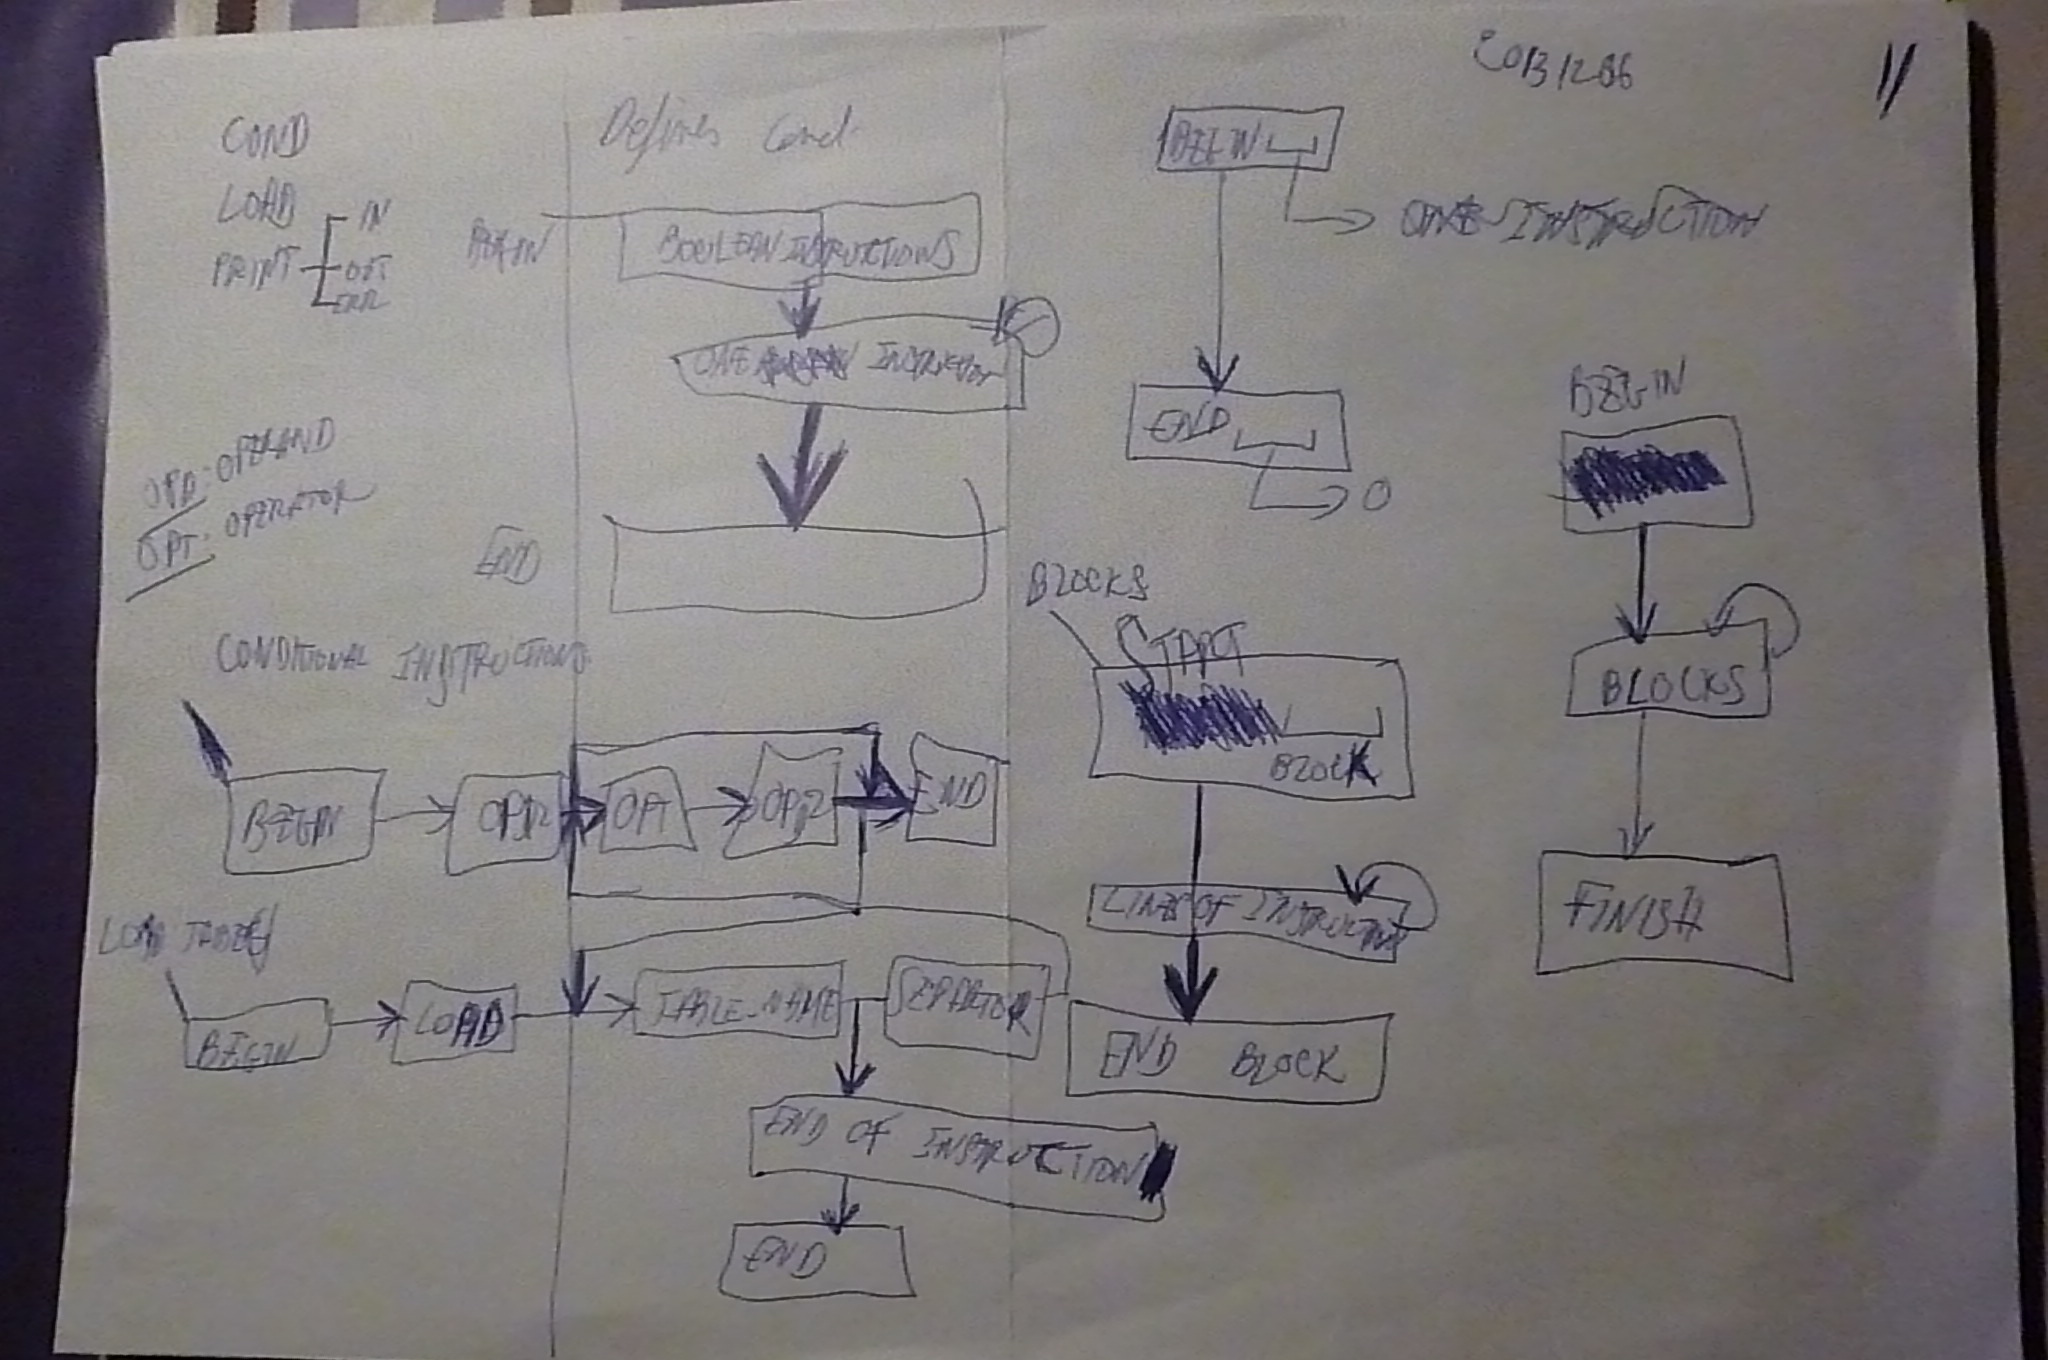 20131206
11
COND
LOAD
PRINT
IN
OUT
ERR
Defines Cond.
BEGIN
BOOLEAN INSTRUCTIONS
ONE INSTRUCTION
END
OPD: OPERAND
OPT: OPERATOR
CONDITIONAL INSTRUCTIONS
BEGIN
OPT
END
LOAD TABLES
BEGIN
LOAD
TABLE_NAME
SEPARATOR
END OF INSTRUCTION
END
BEGIN
ONE INSTRUCTION
END
0
BLOCKS
START
BLOCK
LINE OF INSTRUCTION
END BLOCK
BEGIN
BLOCKS
FINISH